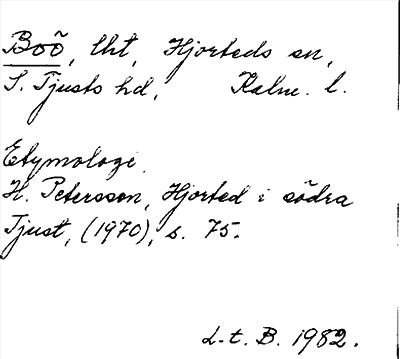 Boö, lht, Hjorteds sn,
S. Tjusts hd, Kalm. l.
Etymologi.
H. Petersson, Hjorted i södra
Tjust, (1970), s. 75.
L.t. B. 1982.